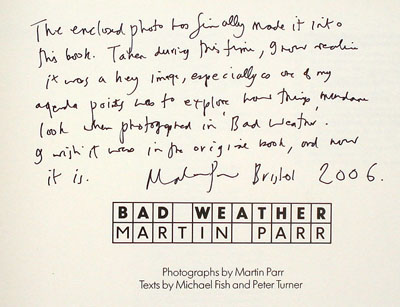 The enclosed photo has finally made it into
this book. Taken during this time, I now realise
it was a key image, especially as one of my
agenda points was to explore how things mundane
look when photographed in 'Bad Weather'.
I wish it were in the original book, and now
it is. Martin Parr Bristol 2006.
BAD WEATHER
MARTIN PARR
Photographs by Martin Parr
Texts by Michael Fish and Peter Turner